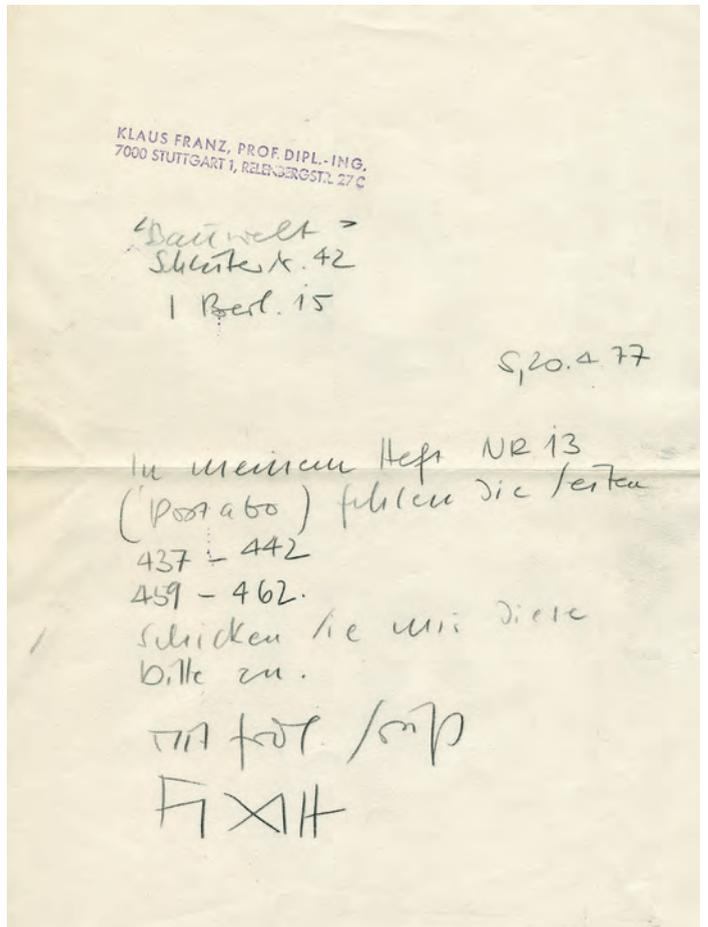 KLAUS FRANZ, PROF. DIPL.-ING.
7000 STUTTGART 1, RELENBERGSTR. 27 C
"Bauwelt"
Schlüterstr. 42
1 Berl. 15
S, 20.4.77
In meinem Heft NR 13
(Postabo) fehlen die Seiten
437 – 442
459 – 462.
Schicken Sie mir diese
bitte zu.
mit frdl.